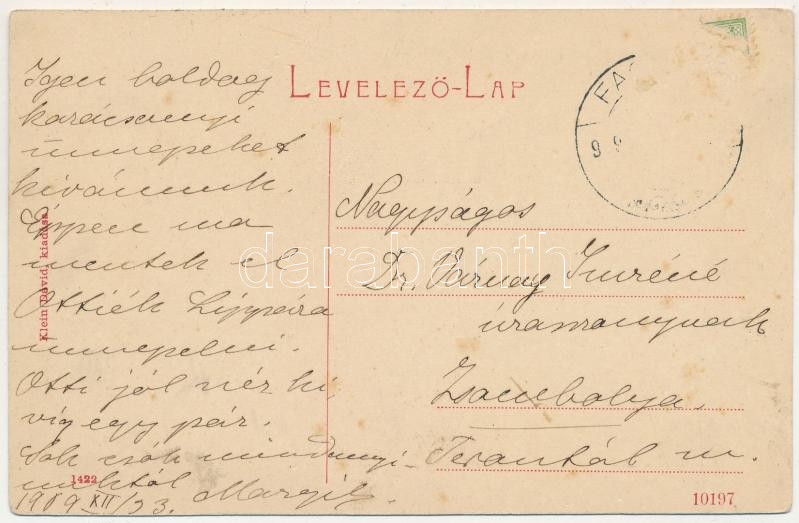 LEVELEZŐ-LAP
Igen boldog
karácsonyi
ünnepeket
kivánunk.
Éppen ma
mentek el
Ottiék Lippára
ünnepelni.
Otti jól néz ki,
víg egy pár.
Sok csók mindnyi-
nuktól
1909 XII/23. Margit
Nagyságos
Dr. Várnay Imréné
úrasszonynak
Zsombolya
Torontál m.
FA
9
Klein Dávid, kiadása
1422
10197
darabanth